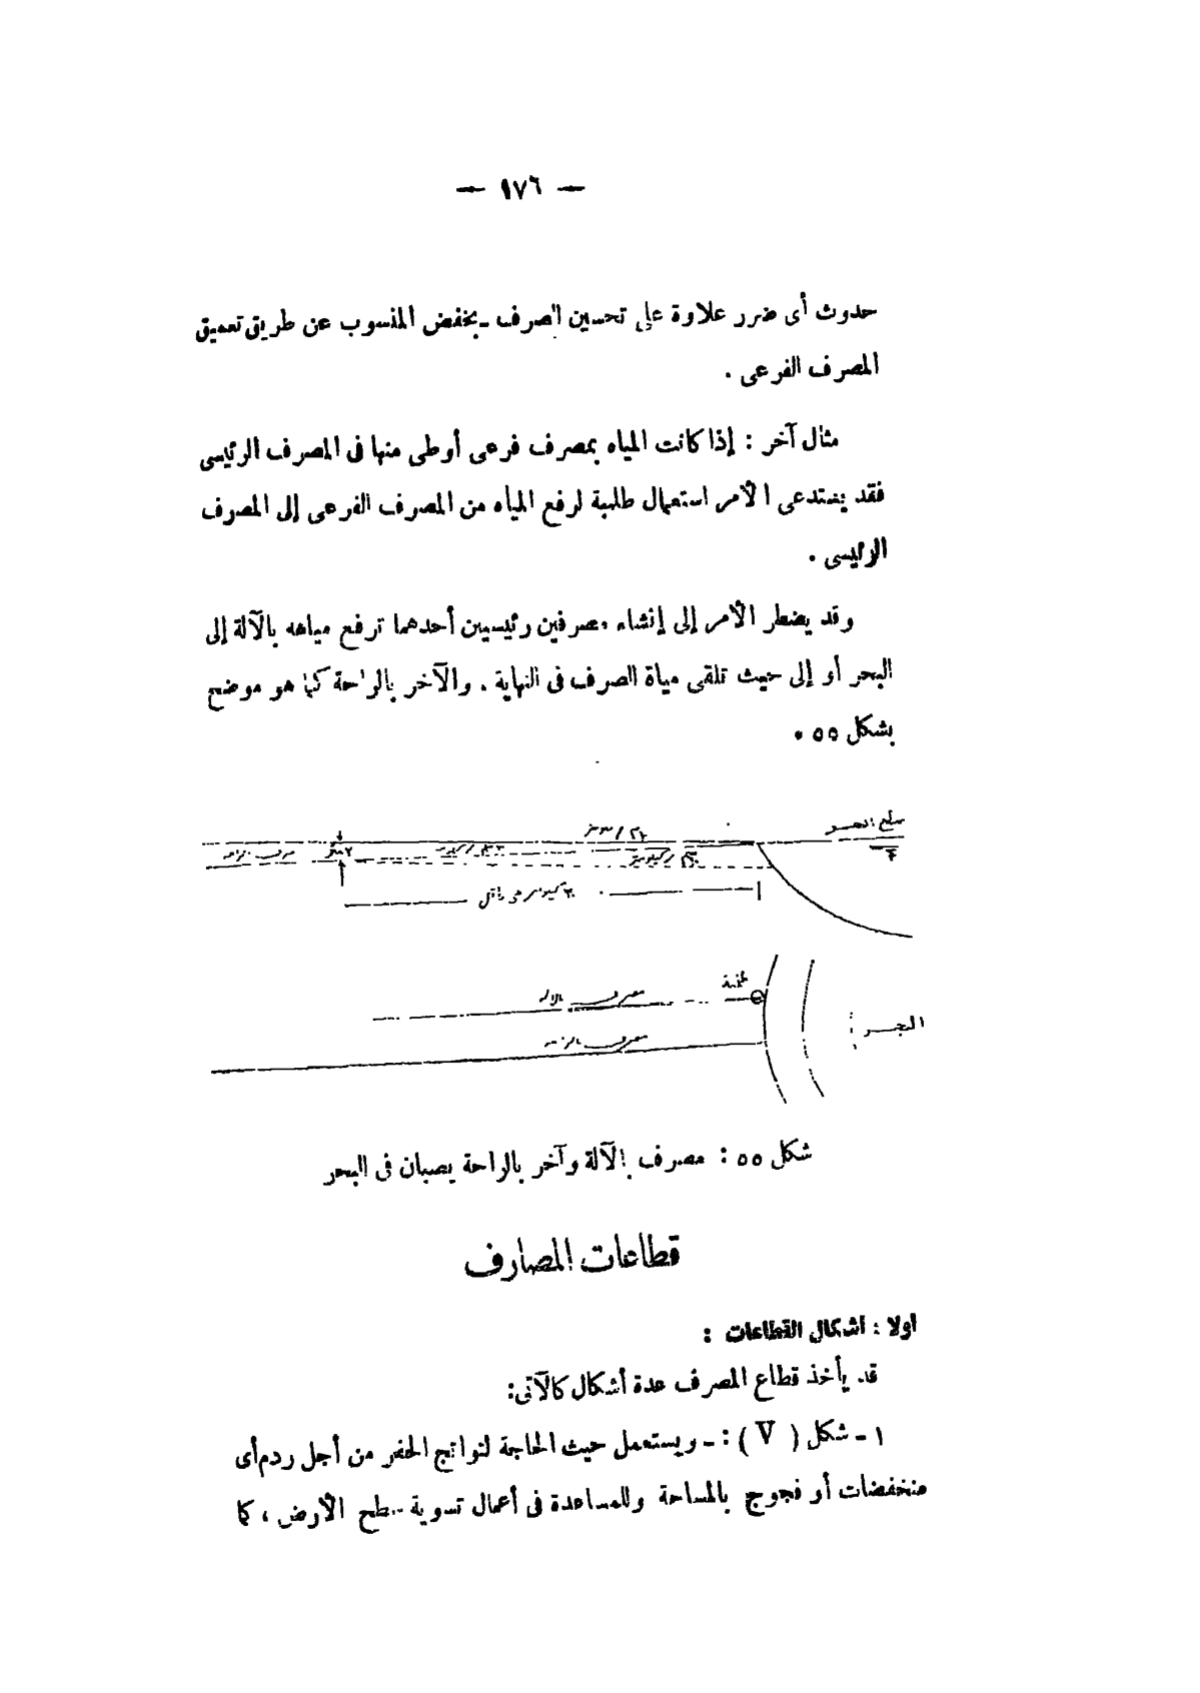 — ١٧٦ —
حدوث أى ضرر علاوة على تحسين الصرف ـ بخفض المنسوب عن طريق تعميق
المصرف الفرعى .
مثال آخر : إذا كانت المياه بمصرف فرعى أوطى منها فى المصرف الرئيسى
فقد يستدعى الأمر استعمال طلمبة لرفع المياه من المصرف الفرعى إلى المصرف
الرئيسى .
وقد يضطر الأمر إلى إنشاء مصرفين رئيسيين أحدهما ترفع مياهه بالآلة إلى
البحر أو إلى حيث تلقى مياة الصرف فى النهاية . والآخر بالراحة كما هو موضح
بشكل ٥٥ .
سطح البحر
مصرف بالراحة
٢ متر
طلمبة
مصرف بالآلة
مصرف بالراحة
البحر
شكل ٥٥ : مصرف بالآلة وآخر بالراحة يصبان فى البحر
قطاعات المصارف
اولا : اشكال القطاعات :
قد يأخذ قطاع المصرف عدة أشكال كالآتى:
١ ـ شكل ( V ) : ـ ويستعمل حيث الحاجة لنواتج الحفر من أجل ردم أى
منخفضات أو فجوج بالمساحة وللمساعدة فى أعمال تسوية سطح الأرض ، كما